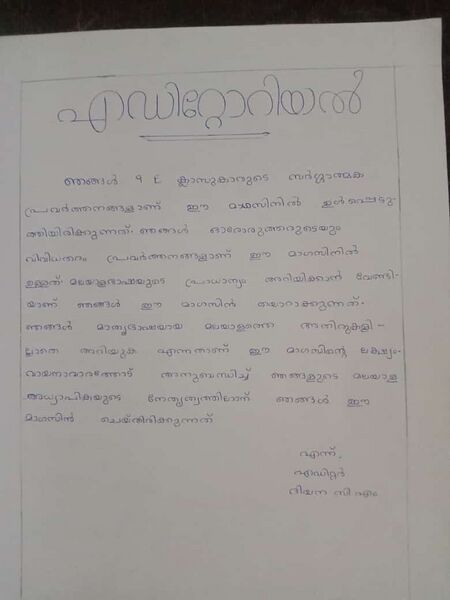 എഡിറ്റോറിയൽ
ഞങ്ങൾ 9 E ക്ലാസുകാരുടെ സർഗ്ഗാത്മക
പ്രവർത്തനങ്ങളാണ് ഈ മാഗസിനിൽ ഉൾപ്പെടു-
ത്തിയിരിക്കുന്നത്. ഞങ്ങൾ ഓരോരുത്തരുടെയും
വിവിധതരം പ്രവർത്തനങ്ങളാണ് ഈ മാഗസിനിൽ
ഉള്ളത്. മലയാളഭാഷയുടെ പ്രാധാന്യം അറിയിക്കാൻ വേണ്ടി-
യാണ് ഞങ്ങൾ ഈ മാഗസിൻ തയാറാക്കുന്നത്.
ഞങ്ങൾ മാതൃഭാഷയായ മലയാളത്തെ അതിരുകളി-
ല്ലാതെ അറിയുക എന്നതാണ് ഈ മാഗസിന്റെ ലക്ഷ്യം.
വായനാവാരത്തോട് അനുബന്ധിച്ച് ഞങ്ങളുടെ മലയാള
അധ്യാപികയുടെ നേതൃത്വത്തിലാണ് ഞങ്ങൾ ഈ
മാഗസിൻ ചെയ്തിരിക്കുന്നത്
എന്ന്,
എഡിറ്റർ
ദിയന സി എം